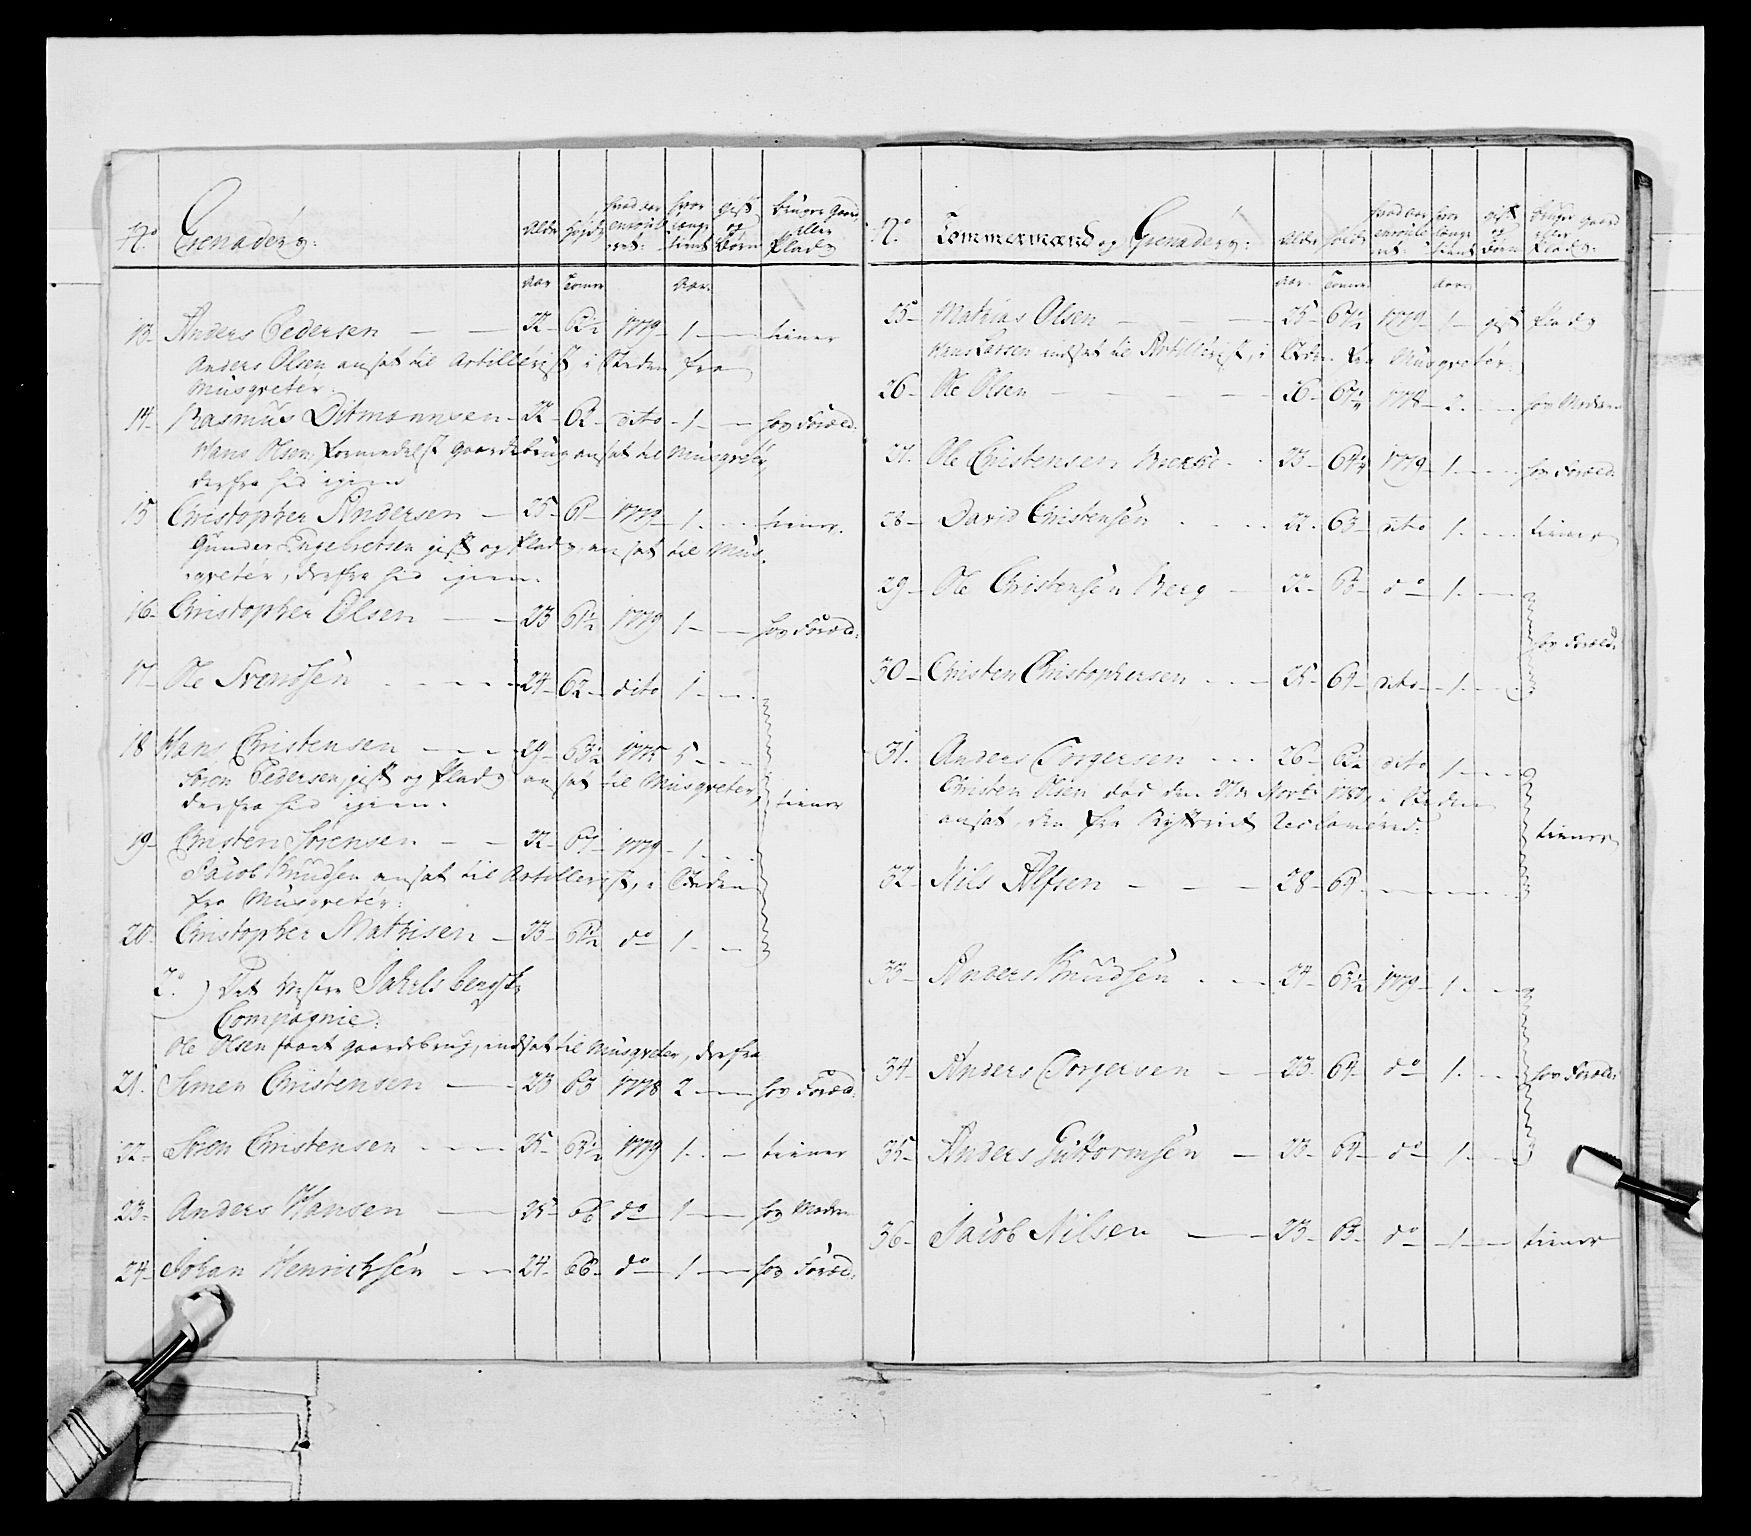 No. Grenaderer:
Alder
højde
hvad aar enroulleret:
hvor længe tient
gift og Børn
bruger Gaard eller Plads
Aar Tomer Aar.
13. Anders Pedersen — 32 - 62½ 1779 - 1 - tiener
Anders Olsen ansat til Artillerist i Steden fra
Musqveter:
14. Rasmus Ditmannsen - 32 - 62 - dito - 1 - hos Foræld:
Hans Olsen, formedelst gaardebrug ansat til Musqveter,
derfra hid igien
15 Christopher Andersen - 25 - 61 - 1779 - 1 - tiener.
Gunder Engebretsen gift og Plads, ansat til Mus,
qveter, derfra hid igien.
16. Christopher Olsen - 23 61½ 1779 1 - hos Foræld:
17 - Ole Svendsen - 24 - 62 - dito 1 -
18 Hans Christensen - 29 - 63½ 1775 5 -
Søren Pedersen, gift og Plads ansat til Musqveter,
derfra hid igien. tiener
19 - Christen Sørensen - 32 - 67 - 1779 - 1 -
Jacob Knudsen ansat til Artillerist, i Steden
fra Musqveter:
20. Christopher Mathisen - 23 - 61½ do 1 -
2o.) Det Vestre Jahrlsbergske
Compagnie:
Ole Olsen faaet gaardebrug, indsat til Musqveter, derfra
21. Simen Christensen - 23 63 1778 2 - hos Foræld:
22 - Søren Christensen - 25 - 63½ 1779 1 - tiener
23 - Anders Hansen - 25 - 66 do 1 - hos Moder
24 - Johan Henrichsen - 24 - 66 - do 1 - hos Foræld:
No. Tømmermænd og Grenaderer:
Alder
højde
hvad aar enroulleret:
hvor længe tient
gift og Børn
bruger Gaard eller Plads:
Aar. Tomer Aar.
25 - Mathias Olsen - 25 - 67½ 1779 - 1 - gift Plads
Hans Larsen indsat til Artillerist, i Steden fra Musqveter:
26 - Ole Olsen - 26 - 67¼ 1778 - 2 - hos Moderen
27. Ole Christensen - 23 - 64¼ 1779 - 1 - hos Foræld.
28 - David Christensen - 22 - 63 - dito 1 - tiener
29 - Ole Christensen Berg - 22 - 63 - do - 1 -
hos Foræld:
30 - Christen Christophersen - 25 - 64 - dito - 1 -
31. Anders Torgersen - 26 - 62 dito 1 -
Christen Olsen død den Novbr: 1780, i Steden
ansat, den fra Rytteriet Reclamered:
tiener
32 - Nils Alfsen - 28 - 64 -
33 - Anders Knudsen - 24 - 63½ 1779 - 1 -
34 - Anders Torgersen - 23 - 64 do 1 - hos Foræld:
35 - Anders Guttormsen - 23 - 64 - do 1 -
36 - Jacob Nilsen - 23 - 63 - do - 1 - tiener